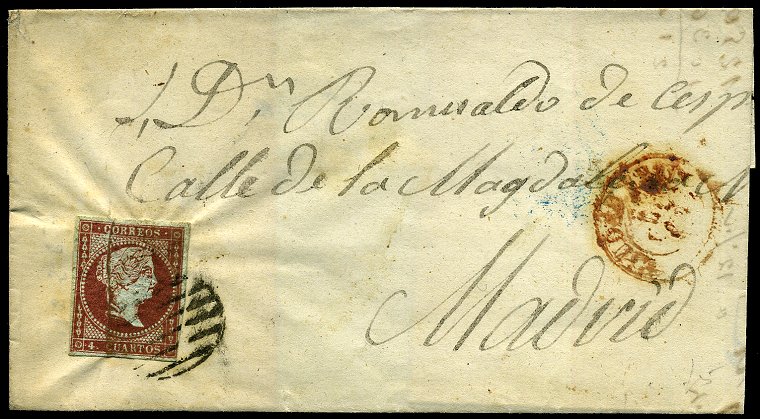 Dn Romualdo de Cesp
Calle de la Magdalena N
Madrid
CORREOS
4 CUARTOS